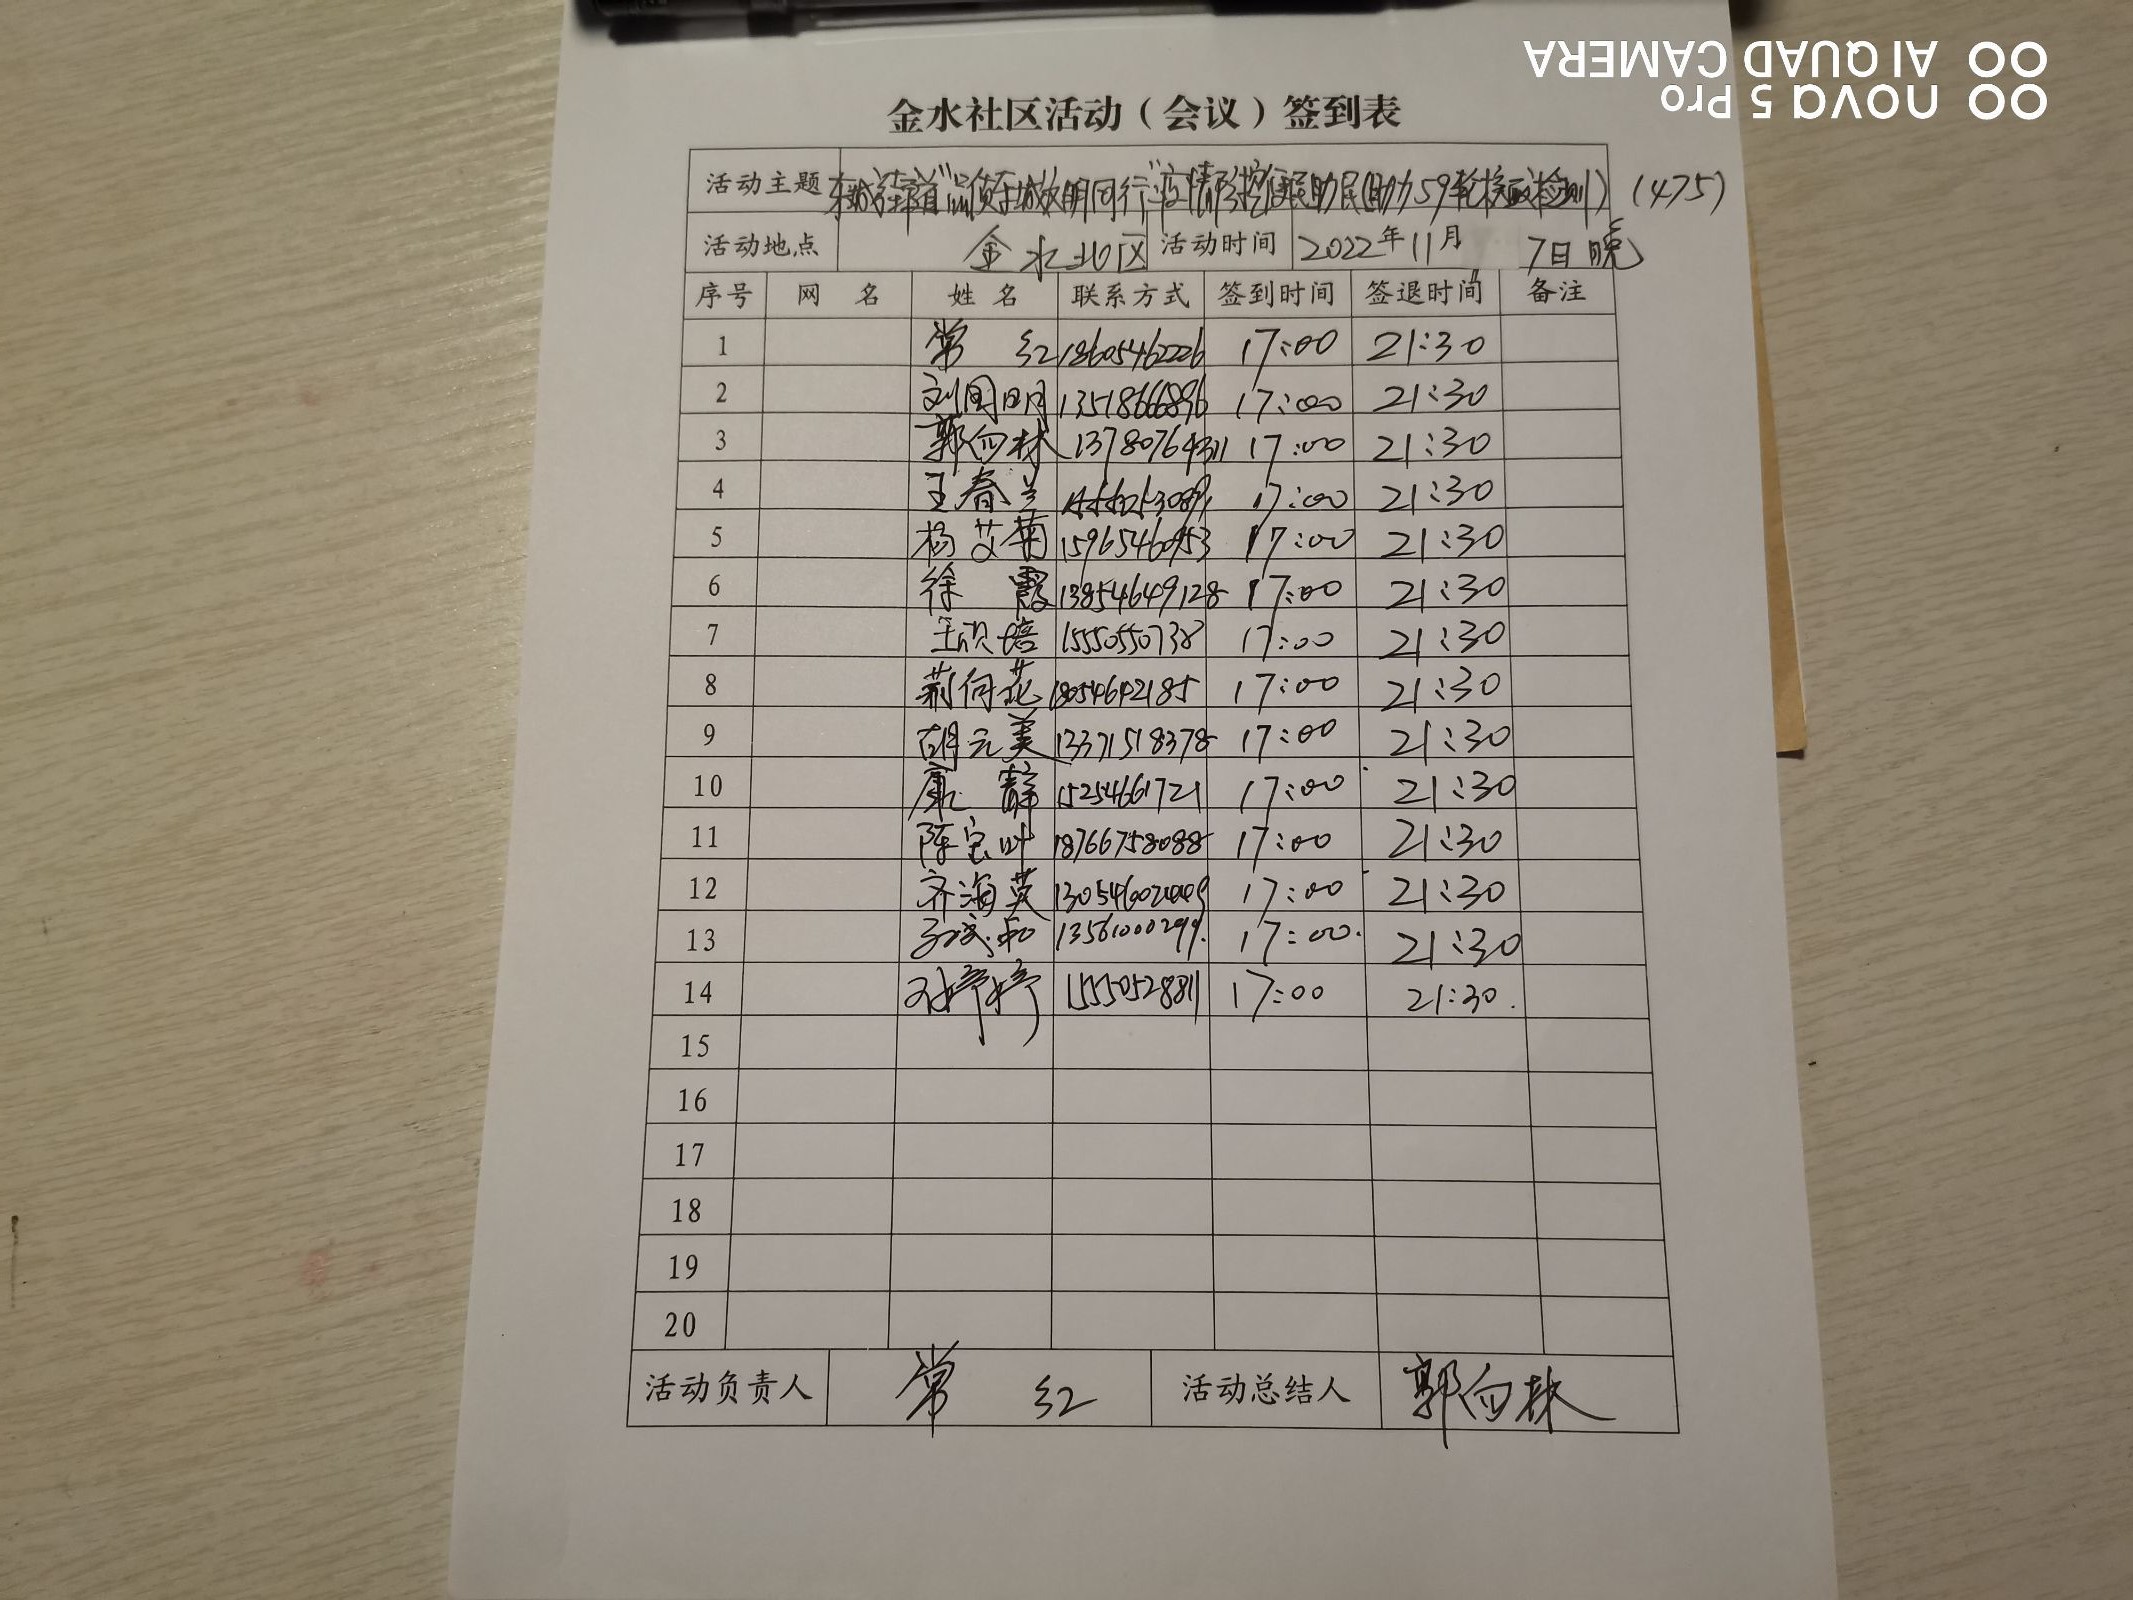 AI QUAD CAMERA
nova 5 Pro
金水社区活动（会议）签到表
活动主题 (475)
活动地点 金水北区 活动时间 2022年11月7日晚
序号 网名 姓名 联系方式 签到时间 签退时间 备注
1 常红 18605462226 17:00 21:30
2 刘图明 13518666896 17:00 21:30
3 郭向林 13780764311 17:00 21:30
4 王春兰 17:00 21:30
5 杨艾菊 15965460953 17:00 21:30
6 徐霞 13854649128 17:00 21:30
7 15550550738 17:00 21:30
8 荆何花 18054642185 17:00 21:30
9 胡元美 13371518378 17:00 21:30
10 康静 15254661721 17:00 21:30
11 陈宝叶 18766758088 17:00 21:30
12 齐海英 17:00 21:30
13 13561000299. 17:00. 21:30
14 婷婷 15550528811 17:00 21:30.
15
16
17
18
19
20
活动负责人 常红 活动总结人 郭向林